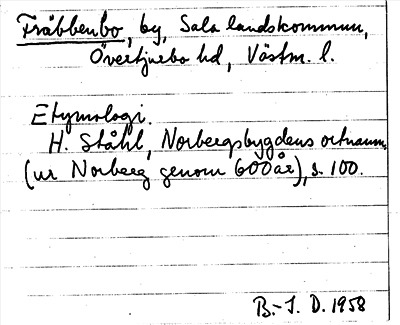 Fräbbenbo, by, Sala landskommun,
Övertjurbo hd, Västm. l.
Etymologi.
H. Ståhl, Norbergsbygdens ortnamn
(ur Norberg genom 600 år), s. 100.
B.-I. D. 1958